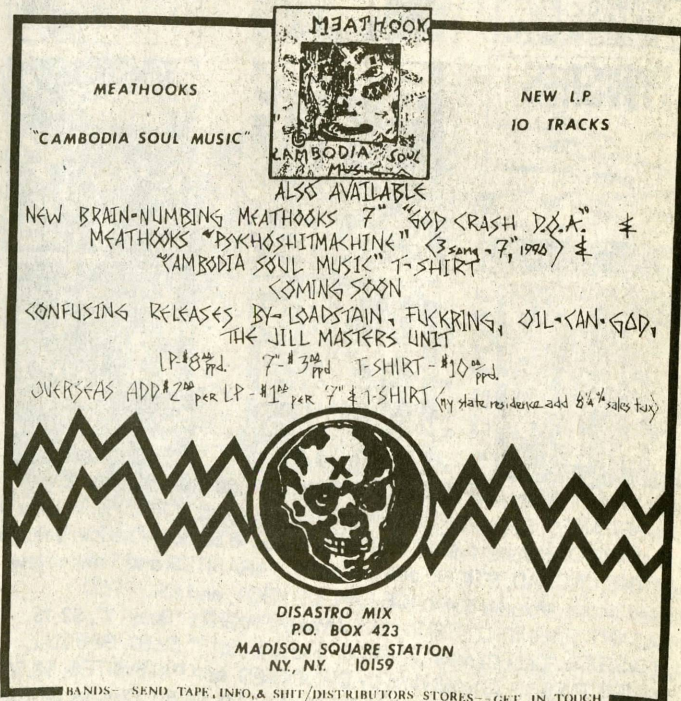 MEATHOOK
MEATHOOKS
"CAMBODIA SOUL MUSIC"
NEW L.P.
10 TRACKS
CAMBODIA SOUL
MUSIC
ALSO AVAILABLE
NEW BRAIN-NUMBING MEATHOOKS 7" "GOD CRASH D.O.A." &
MEATHOOKS "PSYCHOSHITMACHINE" (3 song - 7", 1990) &
"CAMBODIA SOUL MUSIC" T-SHIRT
COMING SOON
CONFUSING RELEASES BY- LOADSTAIN, FUCKRING, OIL-CAN-GOD,
THE JILL MASTERS UNIT
LP-$8.00 ppd. 7"-$3.00 ppd T-SHIRT-$10.00 ppd.
OVERSEAS ADD $2.00 PER LP - $1.00 PER 7" & T-SHIRT (ny state residence add 8 1/4 % sales tax)
X
DISASTRO MIX
P.O. BOX 423
MADISON SQUARE STATION
N.Y., N.Y. 10159
BANDS-- SEND TAPE, INFO, & SHIT/DISTRIBUTORS STORES--GET IN TOUCH